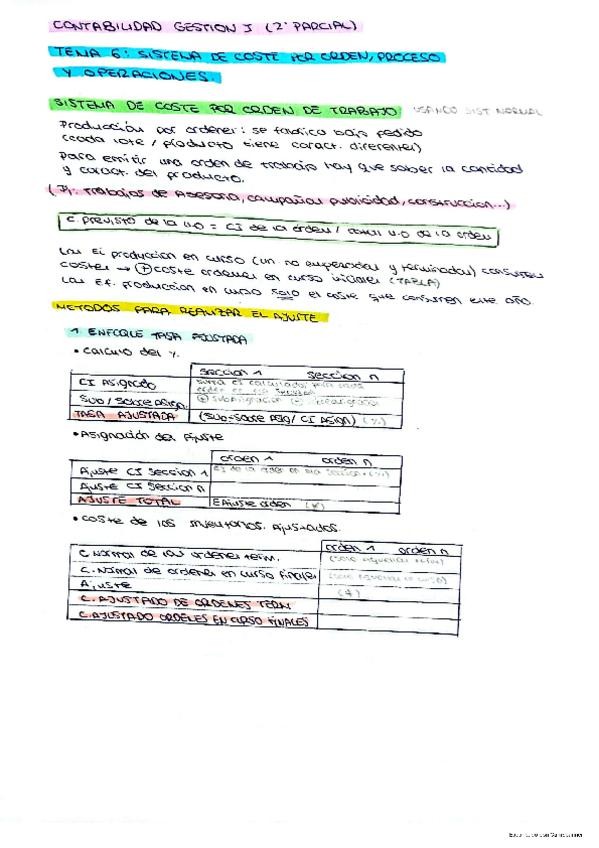 CONTABILIDAD GESTION I (2º PARCIAL)
TEMA 6: SISTEMA DE COSTE POR ORDEN, PROCESO
Y OPERACIONES.
SISTEMA DE COSTE POR ORDEN DE TRABAJO USANDO SIST NORMAL
Producción por ordenes: se fabrica bajo pedido
(cada lote / producto tiene caract. diferentes)
Para emitir una orden de trabajo hay que saber la cantidad
y caract. del producto.
(Pj: trabajos de Asesoria, campañas publicidad, construccion...)
C previsto de la u.o = CI de la orden / u.o de la orden
Las Ei produccion en curso (un no empezadas y terminadas) consumen
costes → + coste ordenes en curso iniciales (TABLA)
Las Ef. produccion en curso solo el coste que consumen este año.
METODOS PARA REALIZAR EL AJUSTE
1 ENFOQUE TASA AJUSTADA
• Calculo del %.
sección 1 sección n
CI Asignado
orden
Sub / Sobre Asign.
TASA AJUSTADA (Sub-Sobre Asig / CI Asign) (%)
• Asignación del Ajuste
orden 1 orden n
Ajuste CI Sección 1
Ajuste CI Sección n
AJUSTE TOTAL Σ Ajuste orden (*)
• Coste de los inventarios Ajustados.
orden 1 orden n
C. Normal de las ordenes term.
C. Normal de ordenes en curso finales
Ajuste (*)
C. AJUSTADO DE ORDENES TERM.
C. AJUSTADO ORDENES EN CURSO FINALES